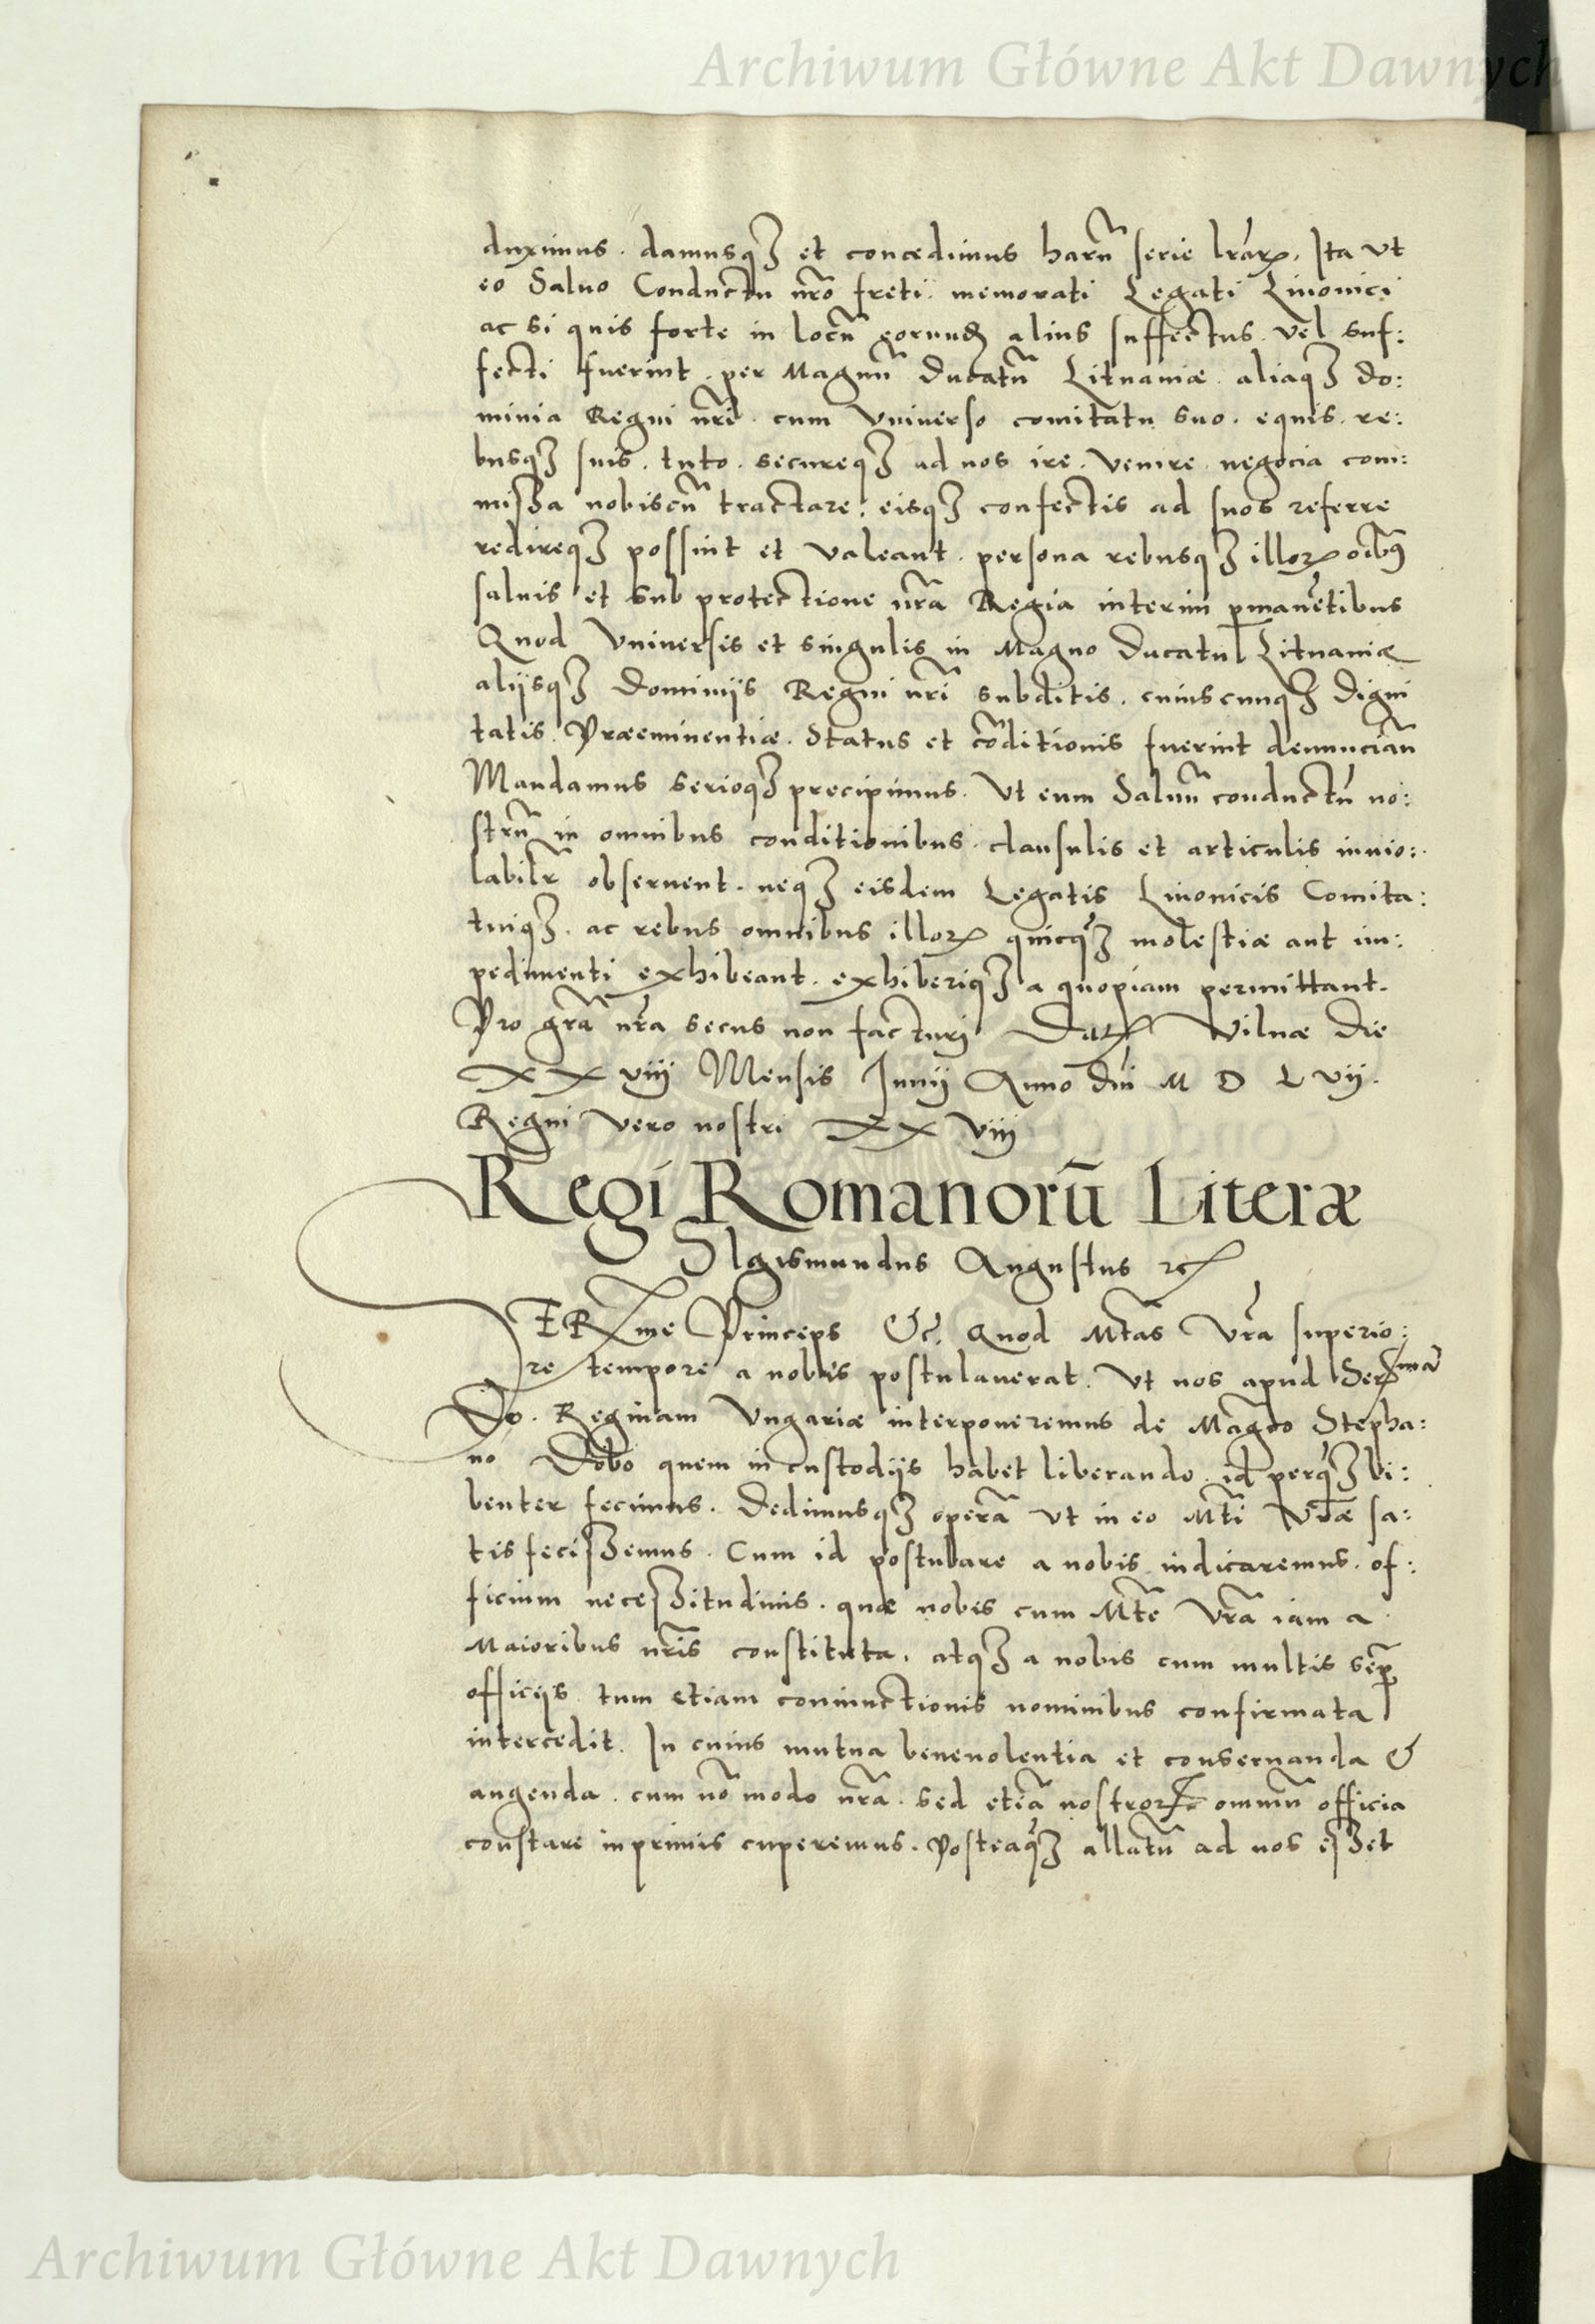 Archiwum Główne Akt Dawnych
duximus. damusqȝ et concedimus harũ serie lr̃arꝝ. Ita vt
eo Saluo Conductu nr̃o freti memorati Legati Liuonici
ac si quis forte in locũ eorundẽ alius suffectus. vel suf:
fecti fuerint. per Magnũ Ducatũ Lituaniæ. aliaqȝ do:
minia Regni nr̃i. cum Vniuerso comitatu suo. equis. re:
busqȝ suis. tuto. secureqȝ ad nos ire. venire. negocia com:
missa nobiscũ tractare: eisqȝ confectis ad suos referre
redireqȝ possint et valeant. persona rebusqȝ illorꝝ oĩbꝰ
saluis et sub protectione nr̃a Regia interim ꝑmanẽtibus
Quod Vniuersis et singulis in Magno Ducatu Lituaniæ
alijsqȝ Dominijs Regni nr̃i subditis. cuiuscunqȝ Digni
tatis. Præeminentiæ. Status et cõditionis fuerint denunciãn
Mandamus serioqȝ precipimus. Vt eum Saluũ conductũ no:
strũ in omnibus conditionibus. clausulis et articulis inuio:
labilr̃ obseruent. neqȝ eisdem Legatis Liuonicis Comita:
tuiqȝ. ac rebus omnibus illorꝝ quicqȝ molestiæ aut im:
pedimenti exhibeant. exhiberiqȝ a quopiam permittant.
Pro gr̃a nr̃a secus non facturi. Datꝝ Vilnæ Die
XX viij Mensis Junij Anno dñi M D L vij.
Regni vero nostri XX viij
Regi Romanorũ Literæ
SIgismundus Augustus ꝛc
SERme Princeps &c. Quod Mtãs Vr̃a superio:
re tempore a nobis postulauerat. Vt nos apud Sermã
Do. Reginam Vngariæ interponeremus de Magco Stepha:
no Dobo quem in custodijs habet liberando. id perqȝ li:
benter fecimus. Dedimusqȝ operã vt in eo Mti Vræ sa:
tisfecissemus. Cum id postulare a nobis iudicaremus. of:
ficium necessitudinis. quæ nobis cum Mte Vr̃a iam a
Maioribus nr̃is constituta. atqȝ a nobis cum multis semꝑ
officijs tum etiam coniunctionis nominibus confirmata
intercedit. In cuius mutua beneuolentia et conseruanda &
augenda. cum nõ modo nr̃a. sed etiã nostrorꝝ omniũ officia
constare inprimis cuperemus. Posteaqȝ allatũ ad nos esset
Archiwum Główne Akt Dawnych